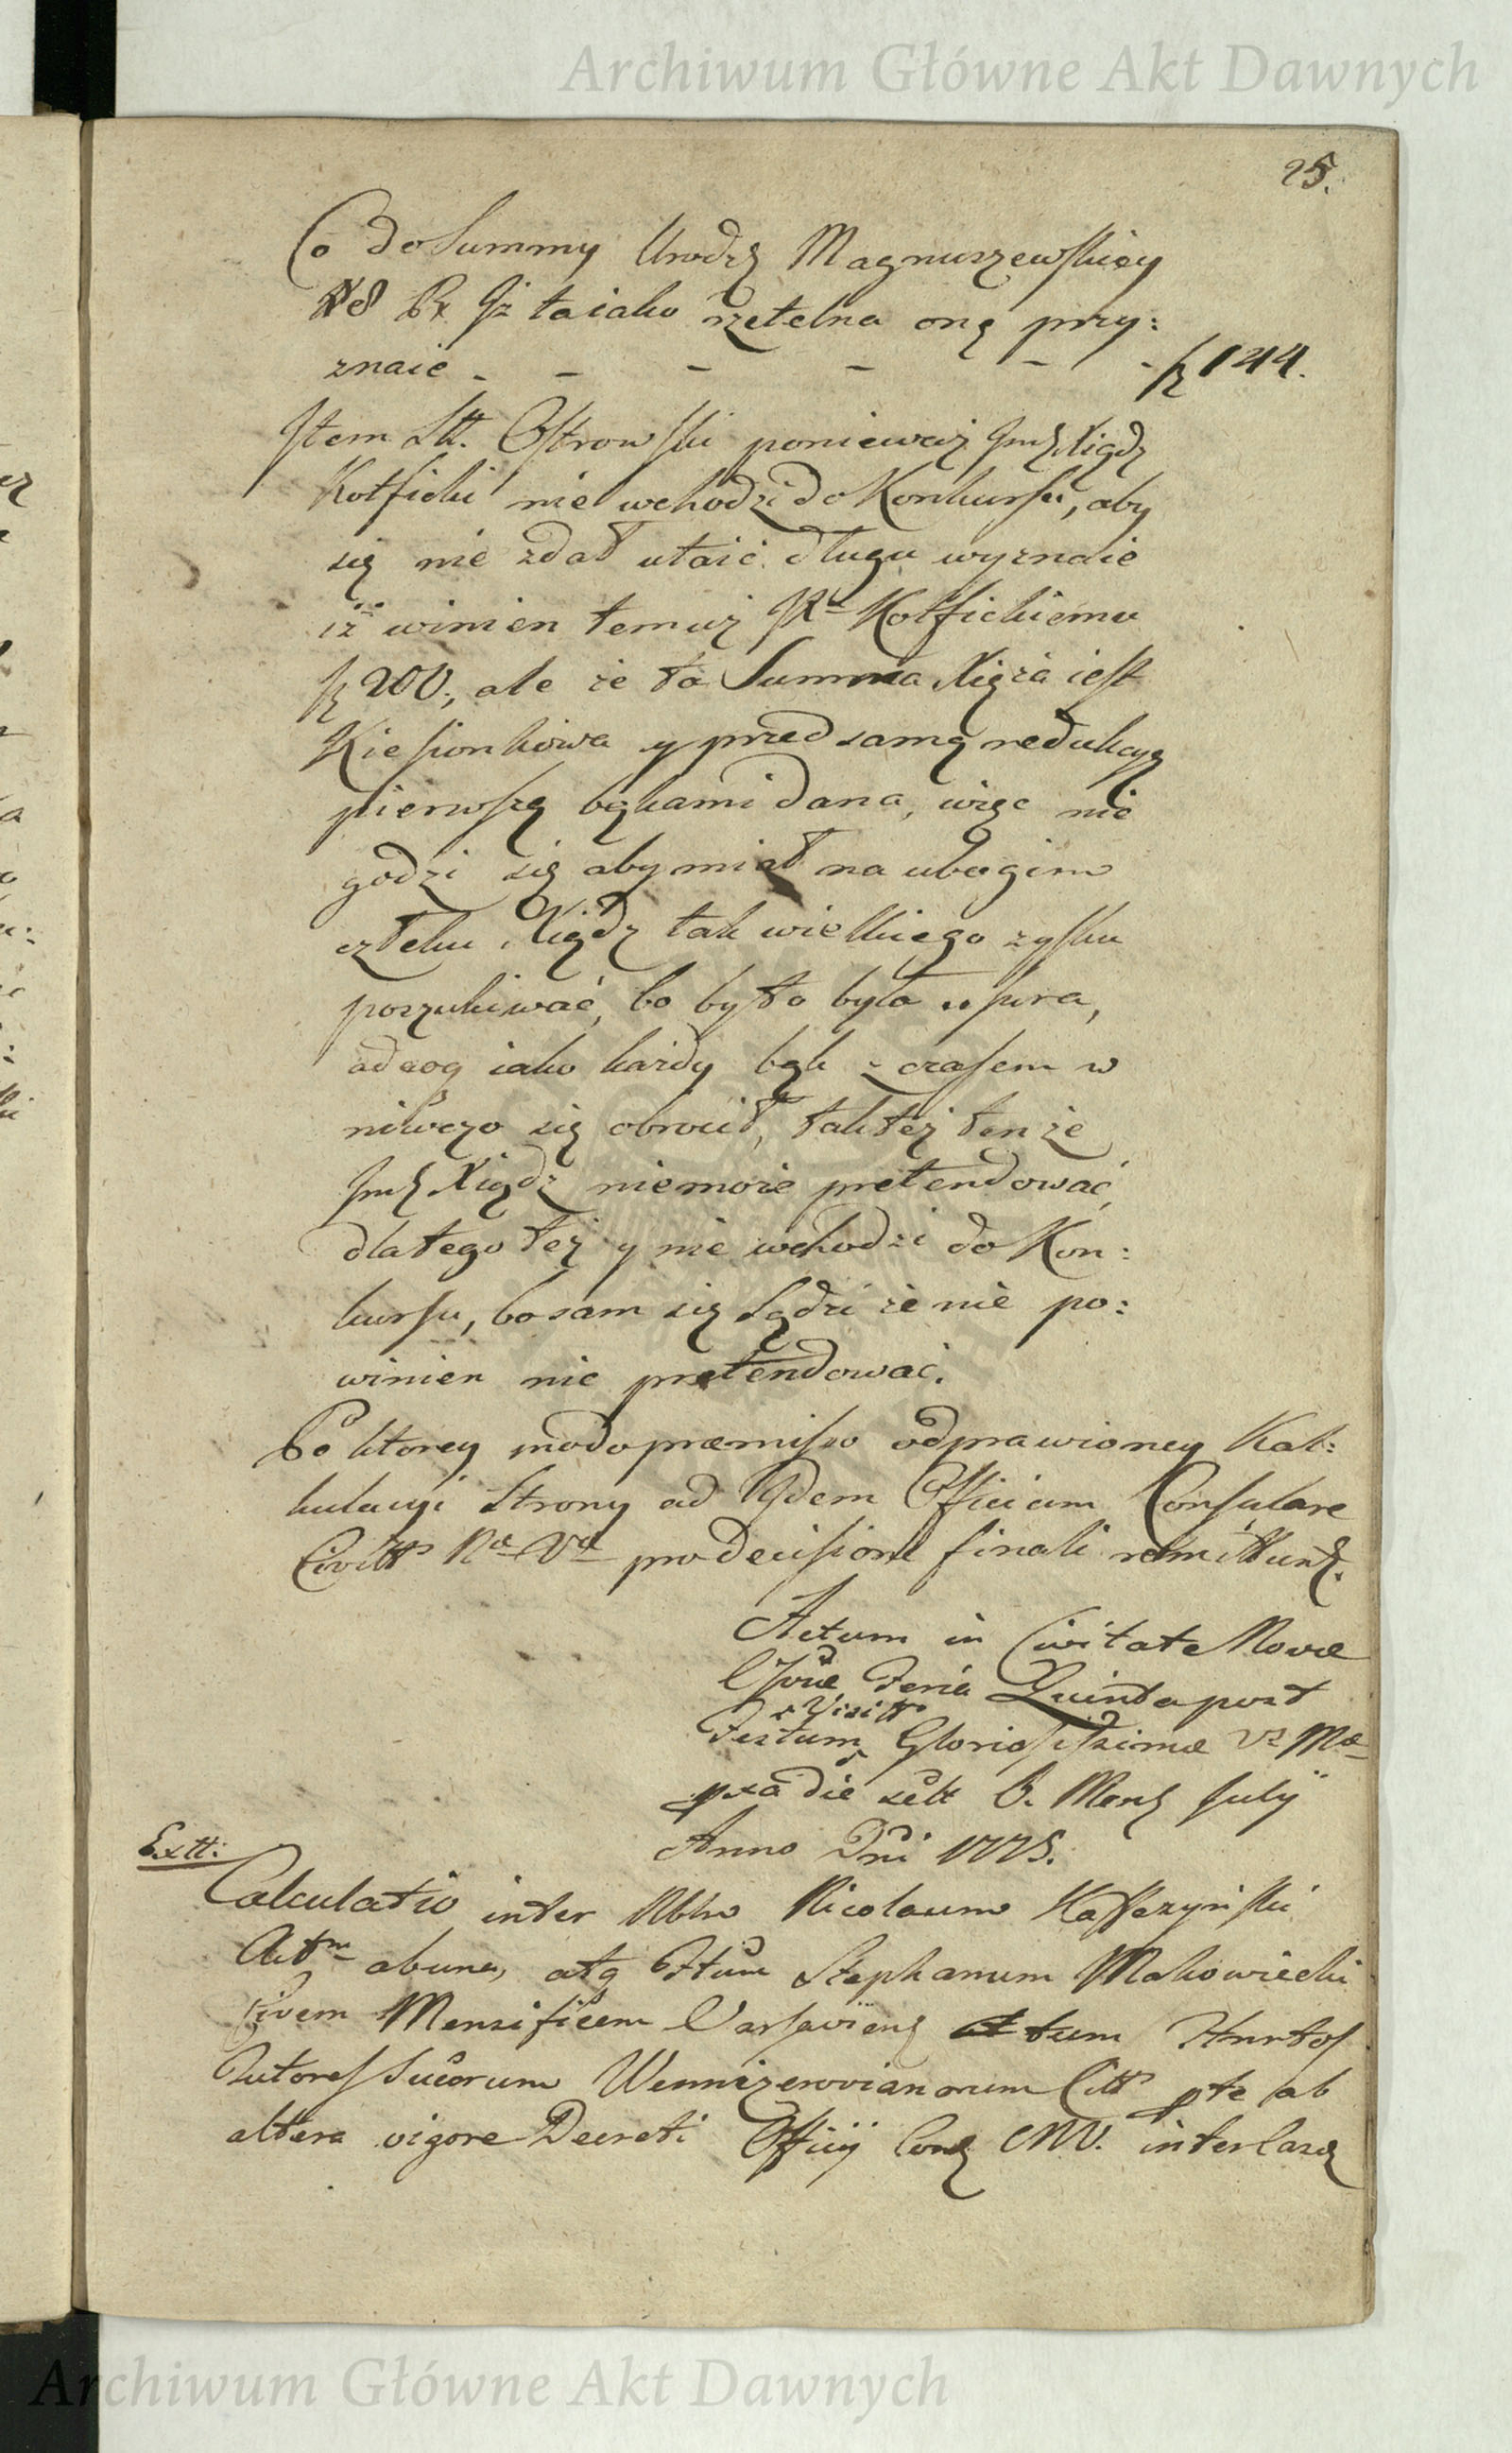 Archiwum Główne Akt Dawnych
25.
Co do Summy Urodz Magnuszewskiey
#8 Rx Jż ta iako rzetelna onę przy:
znaie - - - - - - fz 144.
Item Stt. Ostrowski ponieważ Jmć Xiądz
Kotficki nie wchodzi do Konkursu, aby
się nie zdał utaić długu wyznaie
iż winien temuż Kotfickiemu
fz 200; ale że ta Summa Xięża iest
Kiesionkowa y przed samą redukcyą
pierwszą bąkami dana, więc nie
godzi się aby miał na ubogim
człeku Xiądz tak wielkiego zysku
poszukiwać, bo by to była usura,
adeoq iako każdy bąk z czasem w
niwczo się obrócił, tak też tenże
Jmć Xiądz niemoże pretendować,
dlatego też y nie wchodzi do Kon:
kursu, bo sam się sądzi że nie po:
winien nic pretendować.
Po ktorey modo præmisso odprawioney Kal:
kulacyi Strony ad Idem Officium Consulare
Civitts Næ Væ pro decisione finali remittunt.
Actum in Civitate Nova
Feria Quinta post
Visitt
Festum Gloriosissimæ Vs Mæ
die 6. Mens July
Anno Dni 1775.
Extt:
Calculatio inter Nicolaum
ab una, atq Stephanum Makowiecki
Civem Mensificem Varsaviens tum
Tutores Sucorum Wennizerovianorum Citts pte ab
altera vigore Decreti Officij Cons CNV. inter
Archiwum Główne Akt Dawnych